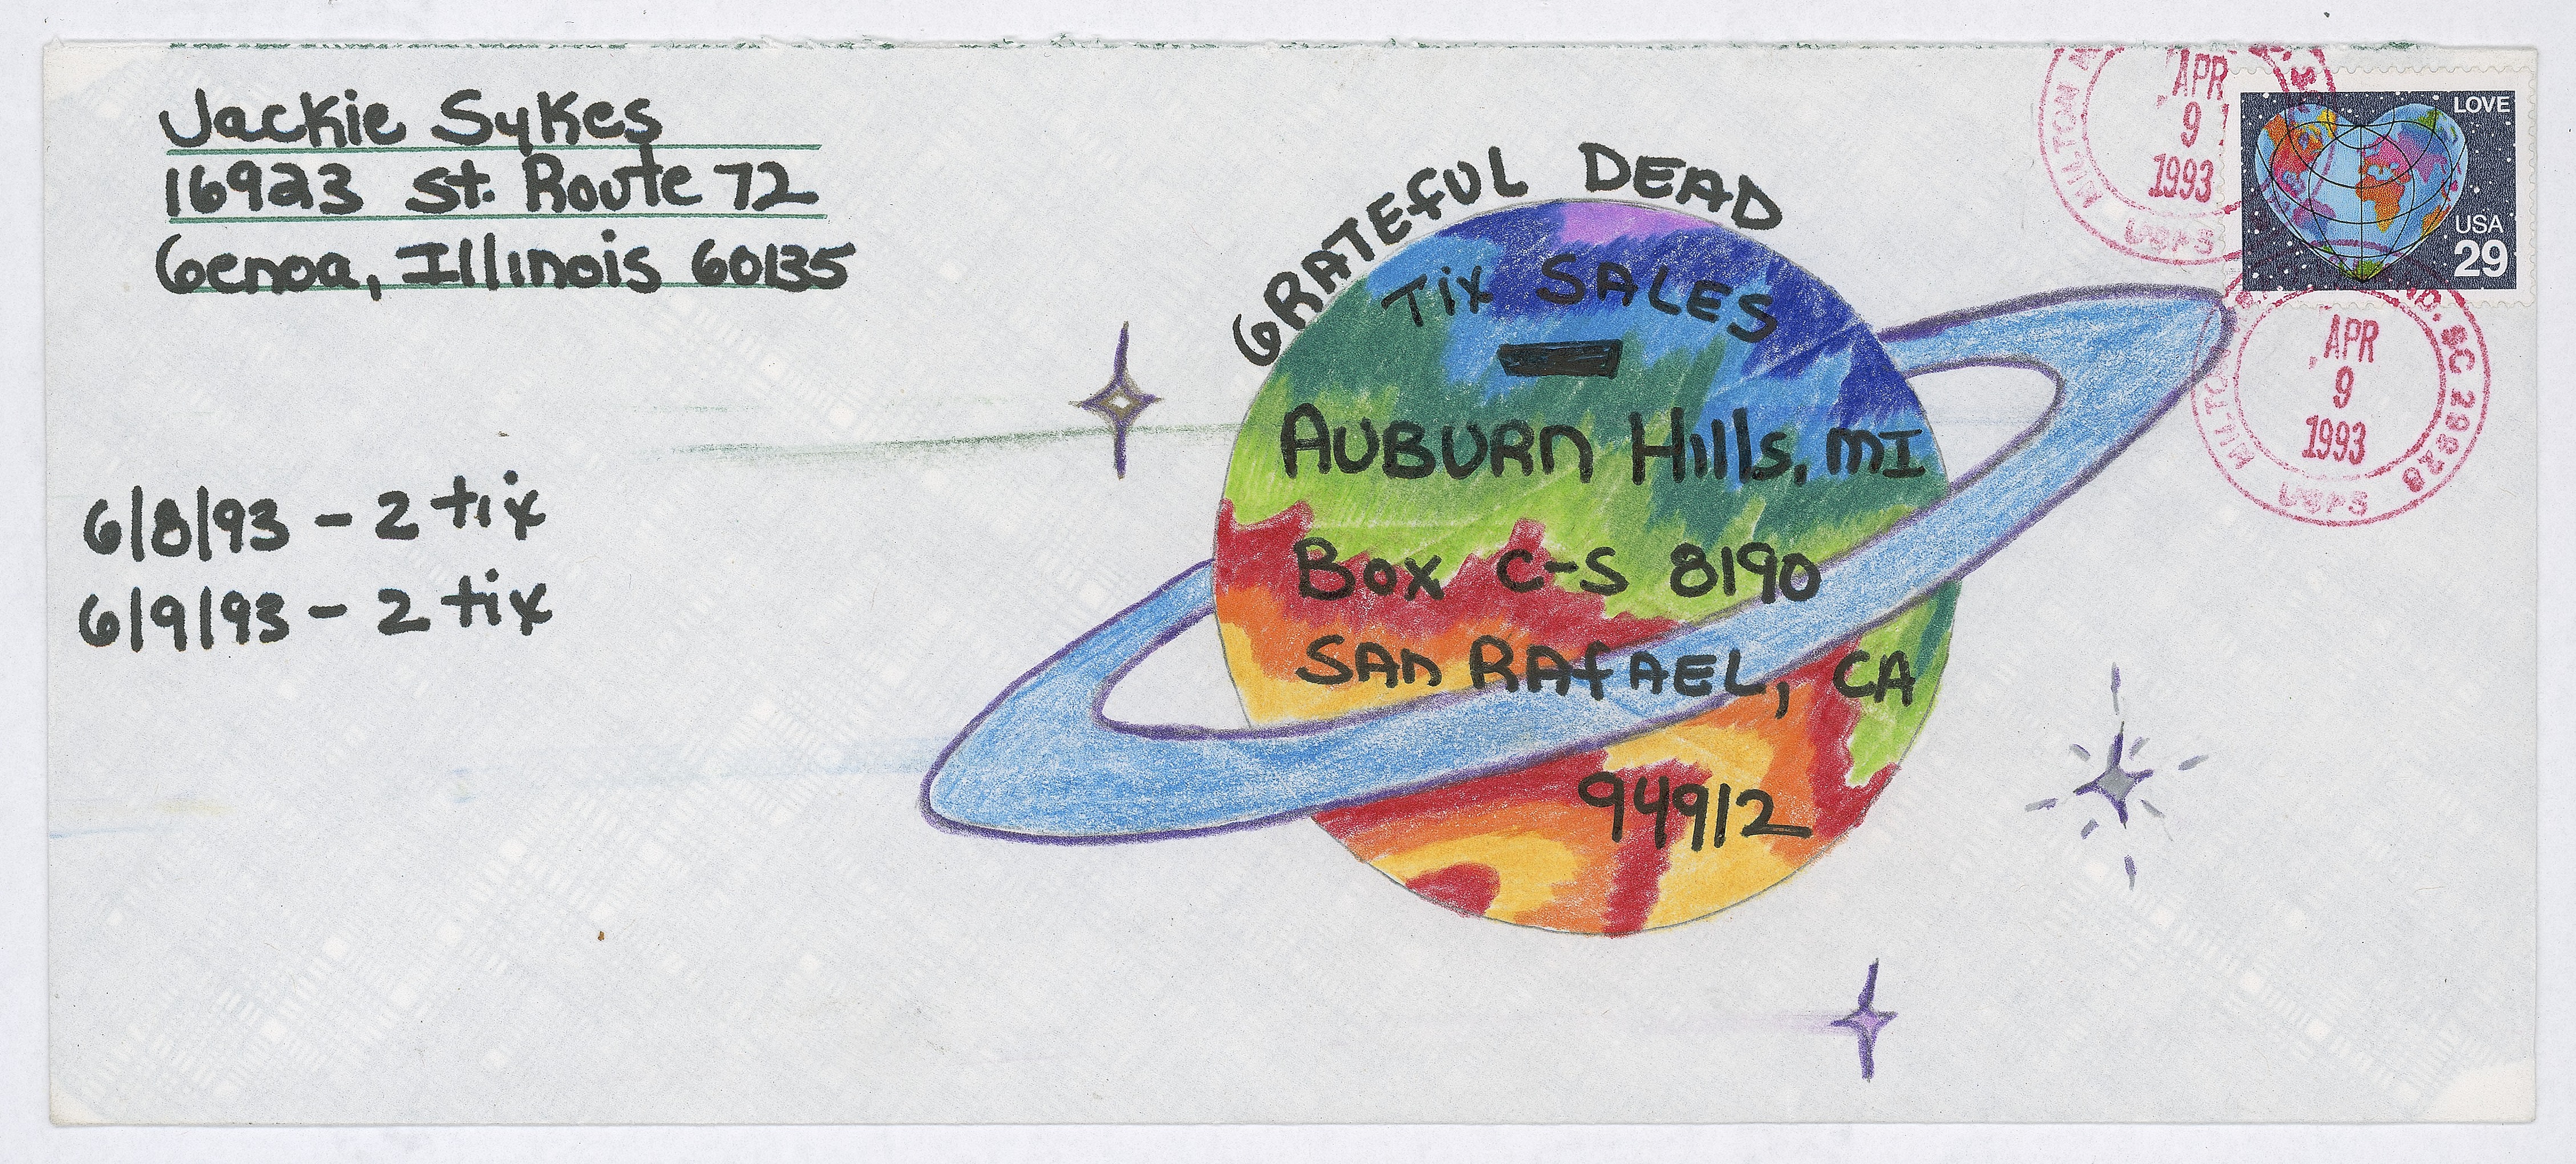 Jackie Sykes
16923 St. Route 72
Genoa, Illinois 60135
6/8/93 - 2 tix
6/9/93 - 2 tix
GRATEFUL DEAD
Tix SALES
AUBURN Hills, MI
Box C-S 8190
SAN RAFAEL, CA
94912
APR
9
1993
USPS
LOVE
USA
29
APR
9
1993
USPS